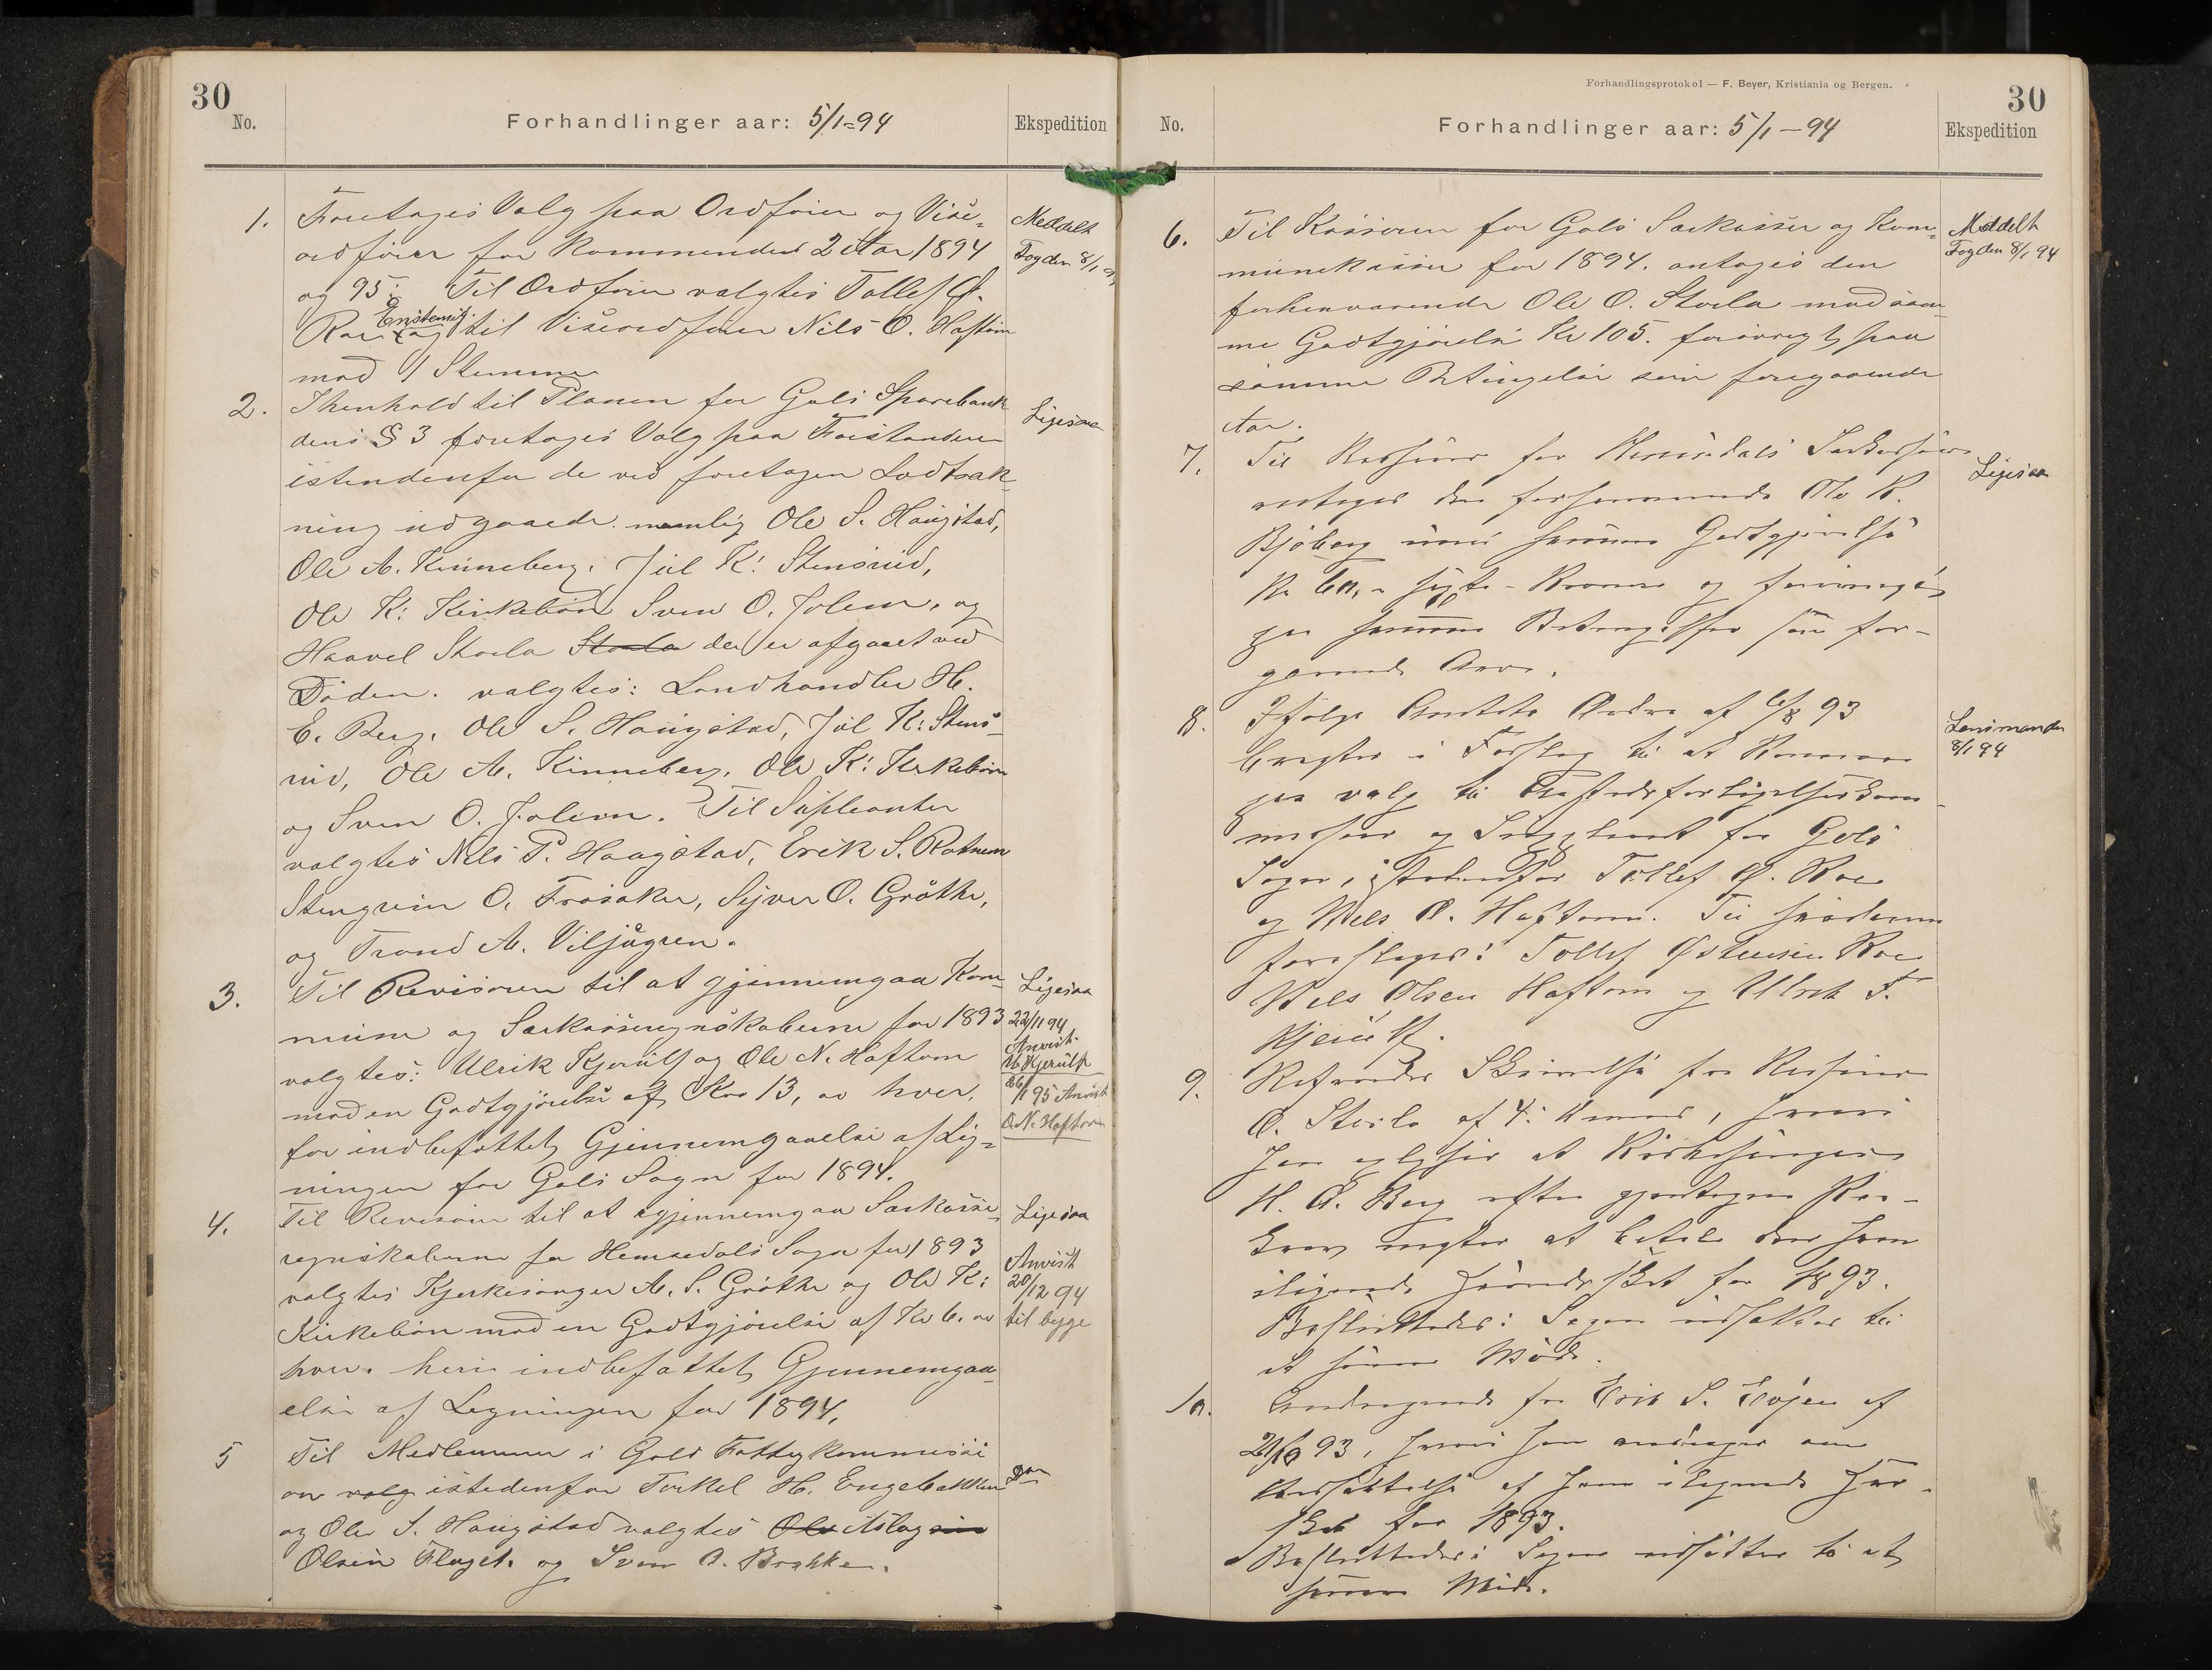 30
No.
Forhandlinger aar: 5/1-94
Ekspedition
1.
Foretages Valg paa Ordförer og Vise-
ordförer for Kommende 2 Aar 1894
og 95. Til Ordförer valgtes Tollef Ø.
Roe Enstemig og til Viseordförer Nils O. Haftorn
med 9 Stemmer
Meddelt
Fogden 8/1 9
2.
Ihenhold til Planen for Gols Sparebank
dens § 3 foretages Valg paa Forstandere
istendenfor de ved foretagen Lodtræk-
ning udgaaede nemlig Ole S. Haugstad,
Ole A. Kinneberg, Jul K. Stensrud,
Ole K. Kirkebøn Sven O. Jolem, og
Haavel Storla Storla der er afgaaet ved
Döden. valgtes: Landhandler H.
E. Berg, Ole S. Haugstad, Jul K. Stens-
rud, Ole A. Kinneberg, Ole K. Kirkebøn
og Sven O. Jolem. Til Supleanter
valgtes Nils P. Haugstad, Erik S. Rotnem
Stengrim O. Frøsaker, Syver O. Grøthe,
og Trond A. Viljugrein.
Ligesaa
3.
Til Revisorer til at gjennemgaa Kom-
mune og Sækasseregnskaberne for 1893
valgtes: Ulrik Kjerulf og Ole N. Haftorn
mod en Godtgjörelse af Kro 13,00 hver,
for indbefattet Gjennemgaaelse af Lig-
ningen for Gols Sogn for 1894.
Ligesaa
22/11 94
Anvist
U. Kjerulf
26/1 95 Anvist
O. N. Haftorn
4.
Til Revisorer til at gjennemgaa Sækasse-
regnskaberne for Hemsedals Sogn for 1893
valgtes Kjerkesanger A. S. Grøthe og Ole K.
Kirkebøn mod en Godtgjörelse af Kr 6.00
hver. heri indbefattet Gjennemgaa-
else af Ligningen for 1894.
Ligesaa
Anvist
20/12 94
til begge
5
Til Medlemmer i Gols Fattigkommissi
on valg istedenfor Torkel H. Engebakken
og Ole S. Haugstad valgtes Ole Aslag
Olsen Flaget. og Sven O. Brakke.
Forhandlingsprotokol — F. Beyer, Kristiania og Bergen.
30
No.
Forhandlinger aar: 5/1 - 94
Ekspedition
6.
Til Kasserer for Gols Sækasse og Kom-
munekasse for 1894. antages den
forhenværende Ole O. Storla mod sam
me Godtgjörelse Kr 105. forövrigt paa
samme Betingelser som foregaaende
Aar.
Meddelt
Fogden 8/1 94
7.
Til Kasserer for Hemsedals Sækasse
antages den forhenværende Ole K.
Bjöberg mod samme Godtgjörelse
Kr 60,- sexti - Kroner og forövrigt
paa samme Betingelser som for-
gaaende Aar.
Ligesaa
8.
Ifölge Amtets Ordre af 6/8 93
bragtes i Forslag til at komme
paa valg til Træstedsforligelseskom-
missær og Supleant for Gols
Sogn, istedenfor Tollef Ø. Roe
og Niels O. Haftorn. Til saadanne
foreslages: Tollef Østensen Roe
Niels Olsen Haftorn og Ulrik F.
Kjerulf.
Lensmanden
8/1 94
9.
Refereredes Skrivelse fra Kasserer
O. Storla af 4. dennes, hvori
han oplyser at Kirkesanger
H. E. Berg efter gjentagne Paa-
krav nægter at betale den ham
ilignede Herredsskat for 1893.
Besluttedes: Sagen udsættes til
et senere Möde.
10.
Andragende fra Erik S. Eikjen af
29/10 93, hvori han andrager om
Nedsættelse af ham ilignede Her-
skat for 1893.
Besluttedes: Sagen udsættes til et
senere Möde.